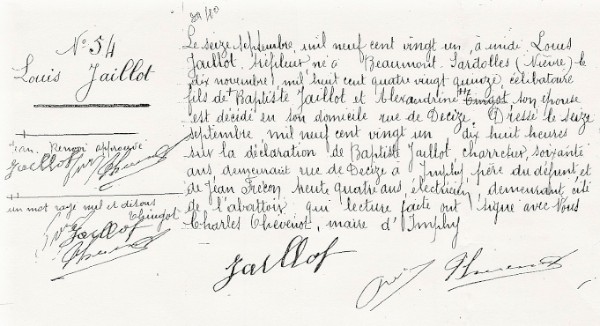 N° 54
Louis Jaillot
Le seize septembre, mil neuf cent vingt un, à midi Louis
Jaillot né à Beaumont Sardolles (Nièvre) le
dix novembre mil huit cent quatre vingt quinze, célibataire
fils de Baptiste Jaillot et Alexandrine son épouse
est décédé en son domicile rue de Decize. Dressé le seize
septembre, mil neuf cent vingt un dix huit heures
sur la déclaration de Baptiste Jaillot charretier, soixante
ans demeurant rue de Decize à Imphy père du défunt et
de Jean trente quatre ans, électricien demeurant cité
de l'abattoir qui lecture faite ont signé avec Nous
Charles Chevenot, maire d'Imphy
Jean. Renvoi approuvé
Jaillot
un mot rayé nul et disons
Thingot
Jaillot
Jaillot